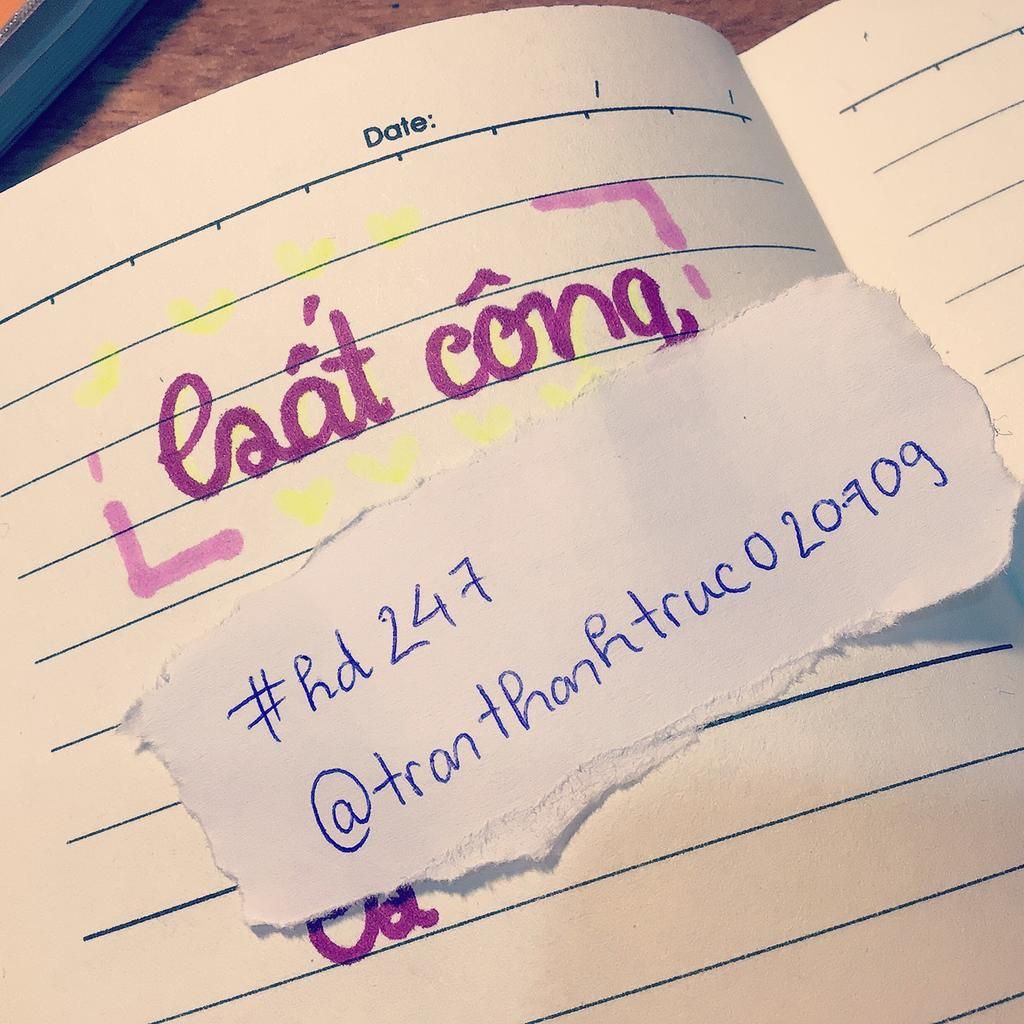 Date: / /
bất công
#hd247
@tranthanhtruc020709